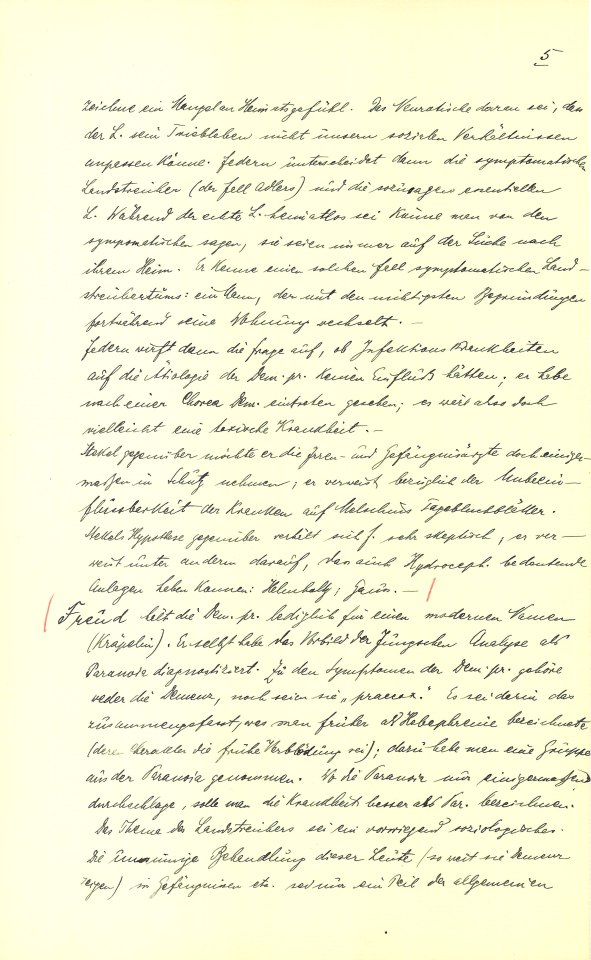 5
zeichne ein Mangel an Heimatsgefühl. Das Neurotische daran sei, dass
der L. sein Triebleben nicht unsern sozialen Verhältnissen
anpassen könne. Federn unterscheidet dann die symptomatischen
Landstreicher (der Fall Adlers) und die sozusagen essentiellen
L. Während der echte L. heimatlos sei könne man von den
sympomatischen sagen, sie seien immer auf der Suche nach
ihrem Heim. Er kenne einen solchen Fall symptomatischen Land-
streichertums: ein Mann, der mit den nichtigsten Begründungen
fortwährend seine Wohnung wechselt. —
Federn wirft dann die Frage auf, ob Infektionskrankheiten
auf die Ätiologie der Dem. pr. keinen Einfluß hätten; er habe
nach einer Chorea Dem. eintreten gesehen; es wäre also doch
vielleicht eine toxische Krankheit. —
Stekel gegenüber möchte er die Irren- und Gefängnisärzte doch einiger-
maßen in Schutz nehmen; er verweist bezüglich der Unbeein-
flussbarkeit der Kranken auf Tageblendblätter.
Stekels Hypothese gegenüber verhält sich F. sehr skeptisch, er ver-
weist unter anderm darauf, dass auch Hydroceph. bedeutende
Anlagen haben können: Helmholtz; Gauss. —
Freud hält die Dem. pr. lediglich für einen modernen Namen
(Kräpelin). Er selbst habe das Vorbild der Jungschen Analyse als
Paranoia diagnostiziert. Zu den Symptomen der Dem. pr. gehöre
weder die Demenz, noch seien sie „praecox." Es sei darin das
zusammengefasst, was man früher als Hebephrenie bezeichnete
(deren Charakter die frühe Verblödung sei); dazu habe man eine Gruppe
aus der Paranoia genommen. Wo die Paranoia nur einigermassen
durchschlage, solle man die Krankheit besser als Par. bezeichnen.
Das Thema des Landstreichers sei ein vorwiegend soziologisches.
Die unsinnige Behandlung dieser Leute (so weit sie Demenz
zeigen) in Gefängnissen etc. sei nur ein Teil der allgemeinen